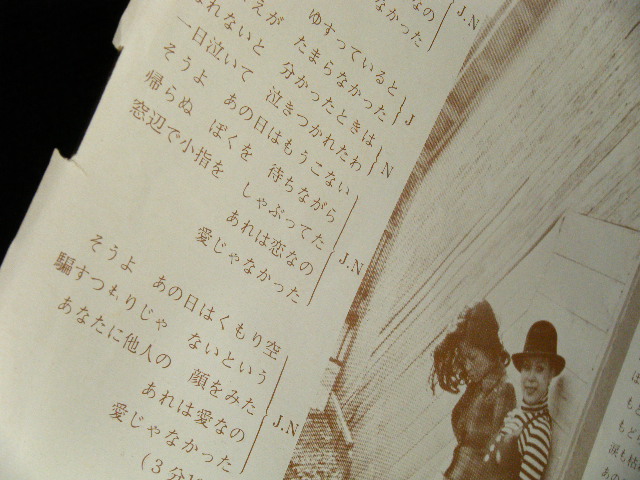 なの
なかった
J.N
えが ゆすっていると
なれないと たまらなかった
J
一日泣いて 分かったときは
そうよ 泣きつかれたわ
N
帰らぬ あの日はもうこない
窓辺で ぼくを 待ちながら
小指を しゃぶってた
あれは恋なの
愛じゃなかった
J.N
そうよ あの日はくもり空
騙すつもりじゃ ないという
あなたに他人の 顔をみた
あれは愛なの
愛じゃなかった
J.N
(3分
は
も
もど
涙も枯
あの